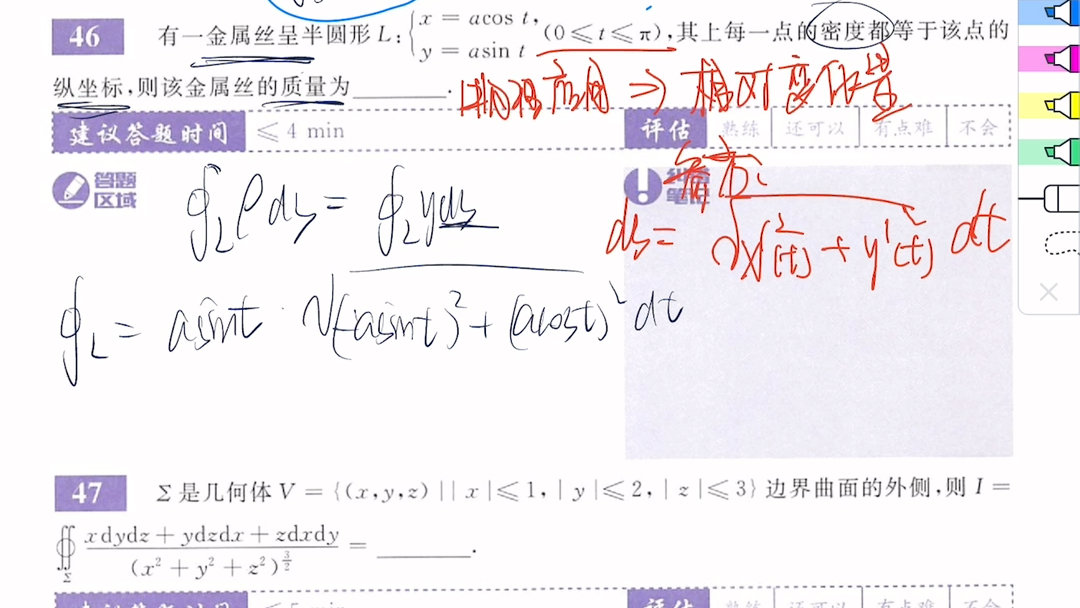 46 有一金属丝呈半圆形 L: { x = acos t, y = asin t (0≤t≤π), 其上每一点的密度都等于该点的
纵坐标,则该金属丝的质量为________.
物理应用 ⇒ 相对变化量
建议答题时间 ≤ 4 min 评估 熟练 还可以 有点难 不会
答题区域
∮_L ρ ds = ∮_L y ds
ds = √(x'²(t) + y'²(t)) dt
∮_L = asint · √((-asint)² + (acost)²) dt
47 Σ 是几何体 V = {(x,y,z) | | x |≤1, | y |≤2, | z |≤3} 边界曲面的外侧,则 I =
∯_Σ (xdydz + ydzdx + zdxdy)/(x² + y² + z²)^(3/2) = ________.